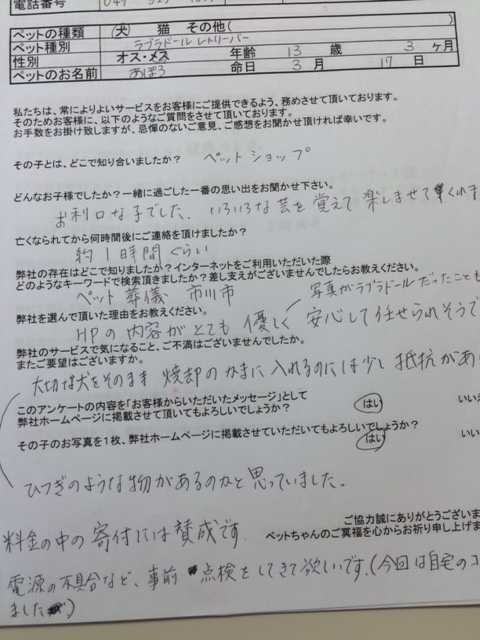 電話番号
ペットの種類 犬 猫 その他( )
ペット種別 ラブラドール レトリーバー
性別 オス・メス 年齢 13 歳 3 ヶ月
ペットのお名前 あぽろ 命日 3 月 17 日
私たちは、常によりよいサービスをお客様にご提供できるよう、務めさせて頂いております。
そのためお客様に、以下のようなご質問をさせて頂いております。
お手数をお掛け致しますが、忌憚のないご意見、ご感想をお聞かせ頂ければ幸いです。
その子とは、どこで知り合いましたか? ペットショップ
どんなお子様でしたか?一緒に過ごした一番の思い出をお聞かせ下さい。
お利口な子でした、いろいろな芸を覚えて楽しませてくれま
亡くなられてから何時間後にご連絡を頂けましたか?
約1時間ぐらい
弊社の存在はどこで知りましたか?インターネットをご利用いただいた際
どのようなキーワードで検索頂きましたか?差し支えがございませんでしたらお教えください。
ペット 葬儀 市川市
写真がラブラドールだったことも
弊社を選んで頂いた理由をお教えください。
HPの内容がとても優しく 安心して任せられそうで
弊社のサービスで気になること、ご不満はございませんでしたか。
またご要望はございますか。
大切な犬をそのまま焼却のかまに入れるのには少し抵抗があ
このアンケートの内容を「お客様からいただいたメッセージ」として
弊社ホームページに掲載させて頂いてもよろしいでしょうか? はい いい
その子のお写真を1枚、弊社ホームページに掲載させていただいてもよろしいでしょうか?
はい いい
ひつぎのような物があるのかと思っていました。
ご協力誠にありがとうございま
ペットちゃんのご冥福を心からお祈り申し上げま
料金の中の寄付には賛成です
電源の不具合など、事前 点検をしてきて欲しいです。(今回は自宅のコ
ました。)